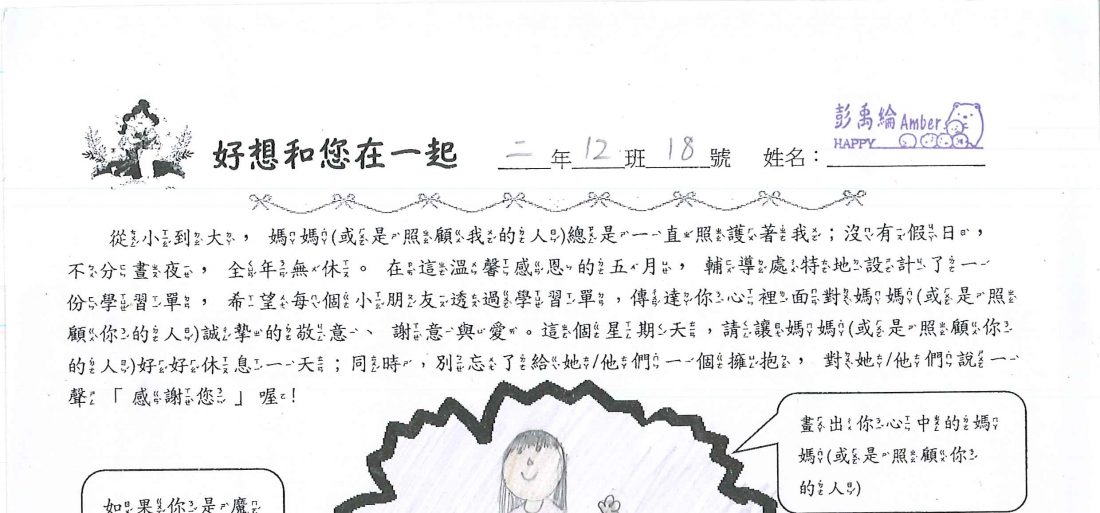 好想和您在一起 二年12班18號 姓名：彭禹綸 Amber
HAPPY
從小到大，媽媽(或是照顧我的人)總是一直照護著我；沒有假日，
不分晝夜，全年無休。在這溫馨感恩的五月，輔導處特地設計了一
份學習單，希望每個小朋友透過學習單，傳達你心裡面對媽媽(或是照
顧你的人)誠摯的敬意、謝意與愛。這個星期天，請讓媽媽(或是照顧你
的人)好好休息一天；同時，別忘了給她/他們一個擁抱，對她/他們說一
聲「感謝您」喔！
畫出你心中的媽
媽(或是照顧你
的人)
如果你是魔